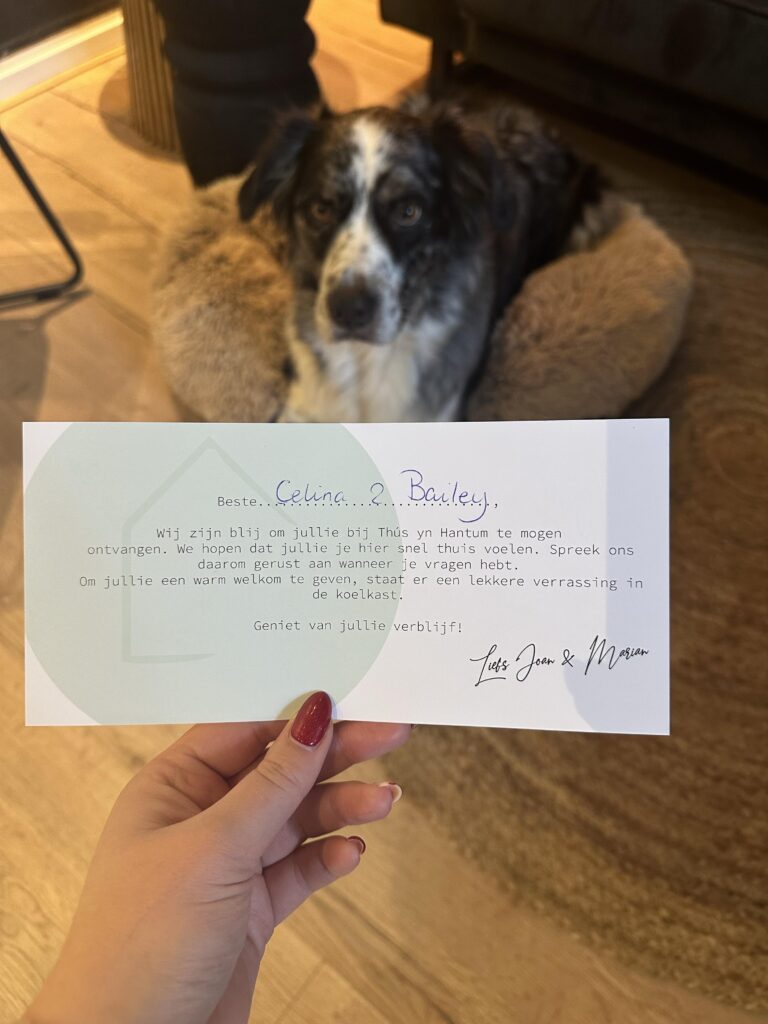 Beste..Celina & Bailey.,
Wij zijn blij om jullie bij Thús yn Hantum te mogen
ontvangen. We hopen dat jullie je hier snel thuis voelen. Spreek ons
daarom gerust aan wanneer je vragen hebt.
Om jullie een warm welkom te geven, staat er een lekkere verrassing in
de koelkast.
Geniet van jullie verblijf!
Liefs Joan & Marian